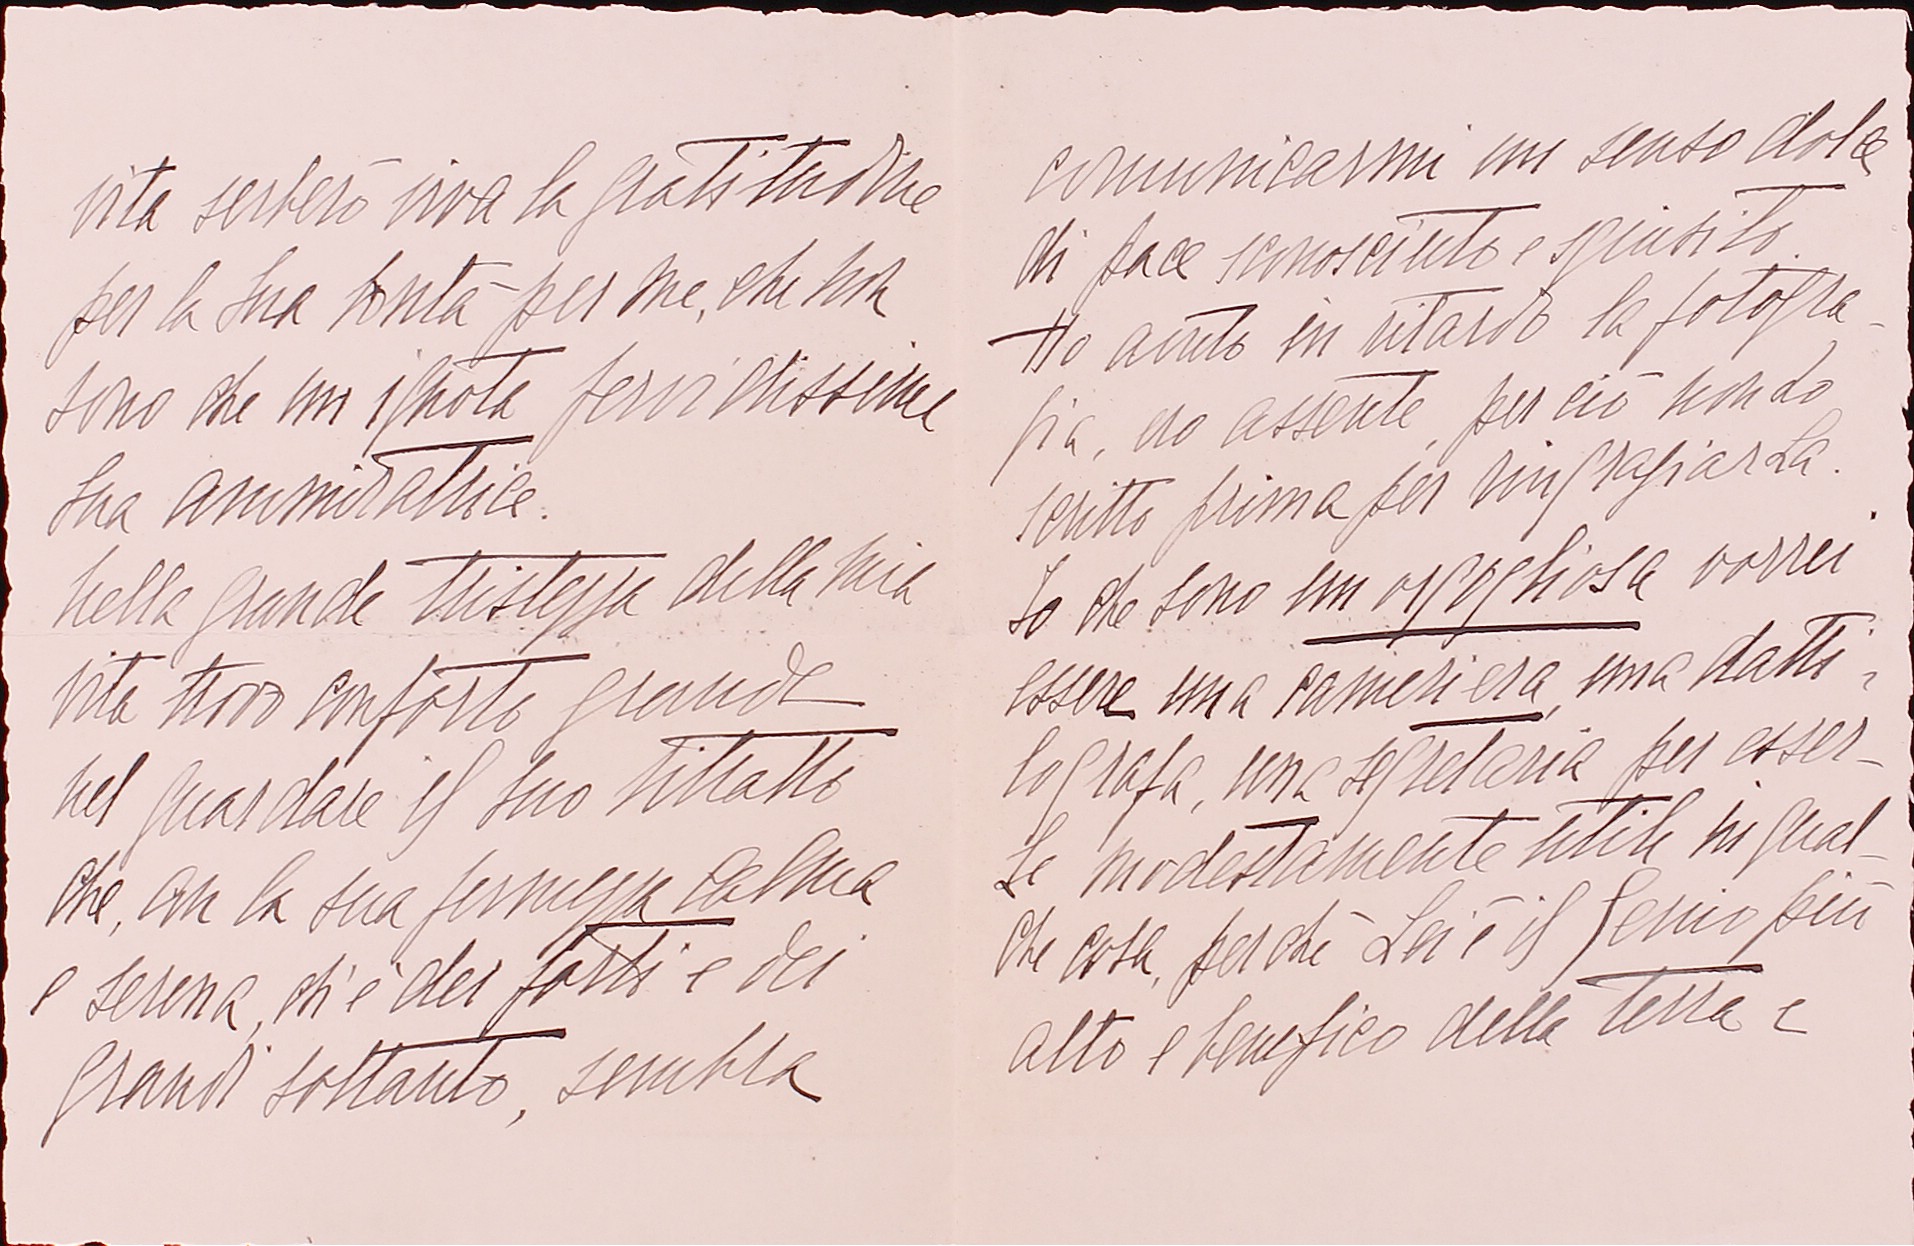 vita serberò viva la gratitudine
per la Sua bontà per me, che non
sono che un ignota fervidissima
Sua ammiratrice.
Nella grande tristezza della mia
vita trovo conforto grande
nel guardare il suo ritratto
che, con la sua fermezza calma
e serena, ch'è dei forti e dei
grandi soltanto, sembra
comunicarmi un senso dolce
di pace sconosciuto e squisito.
Ho avuto in ritardo la fotogra-
fia, ero assente, perciò non Lo
scritto prima per ringraziarLa.
Io che sono un orgogliosa vorrei
essere una cameriera, una datti-
lografa, una segretaria per esser-
Le modestamente utile in qual-
che cosa, perchè Lei è il Genio più
alto e benefico della terra e